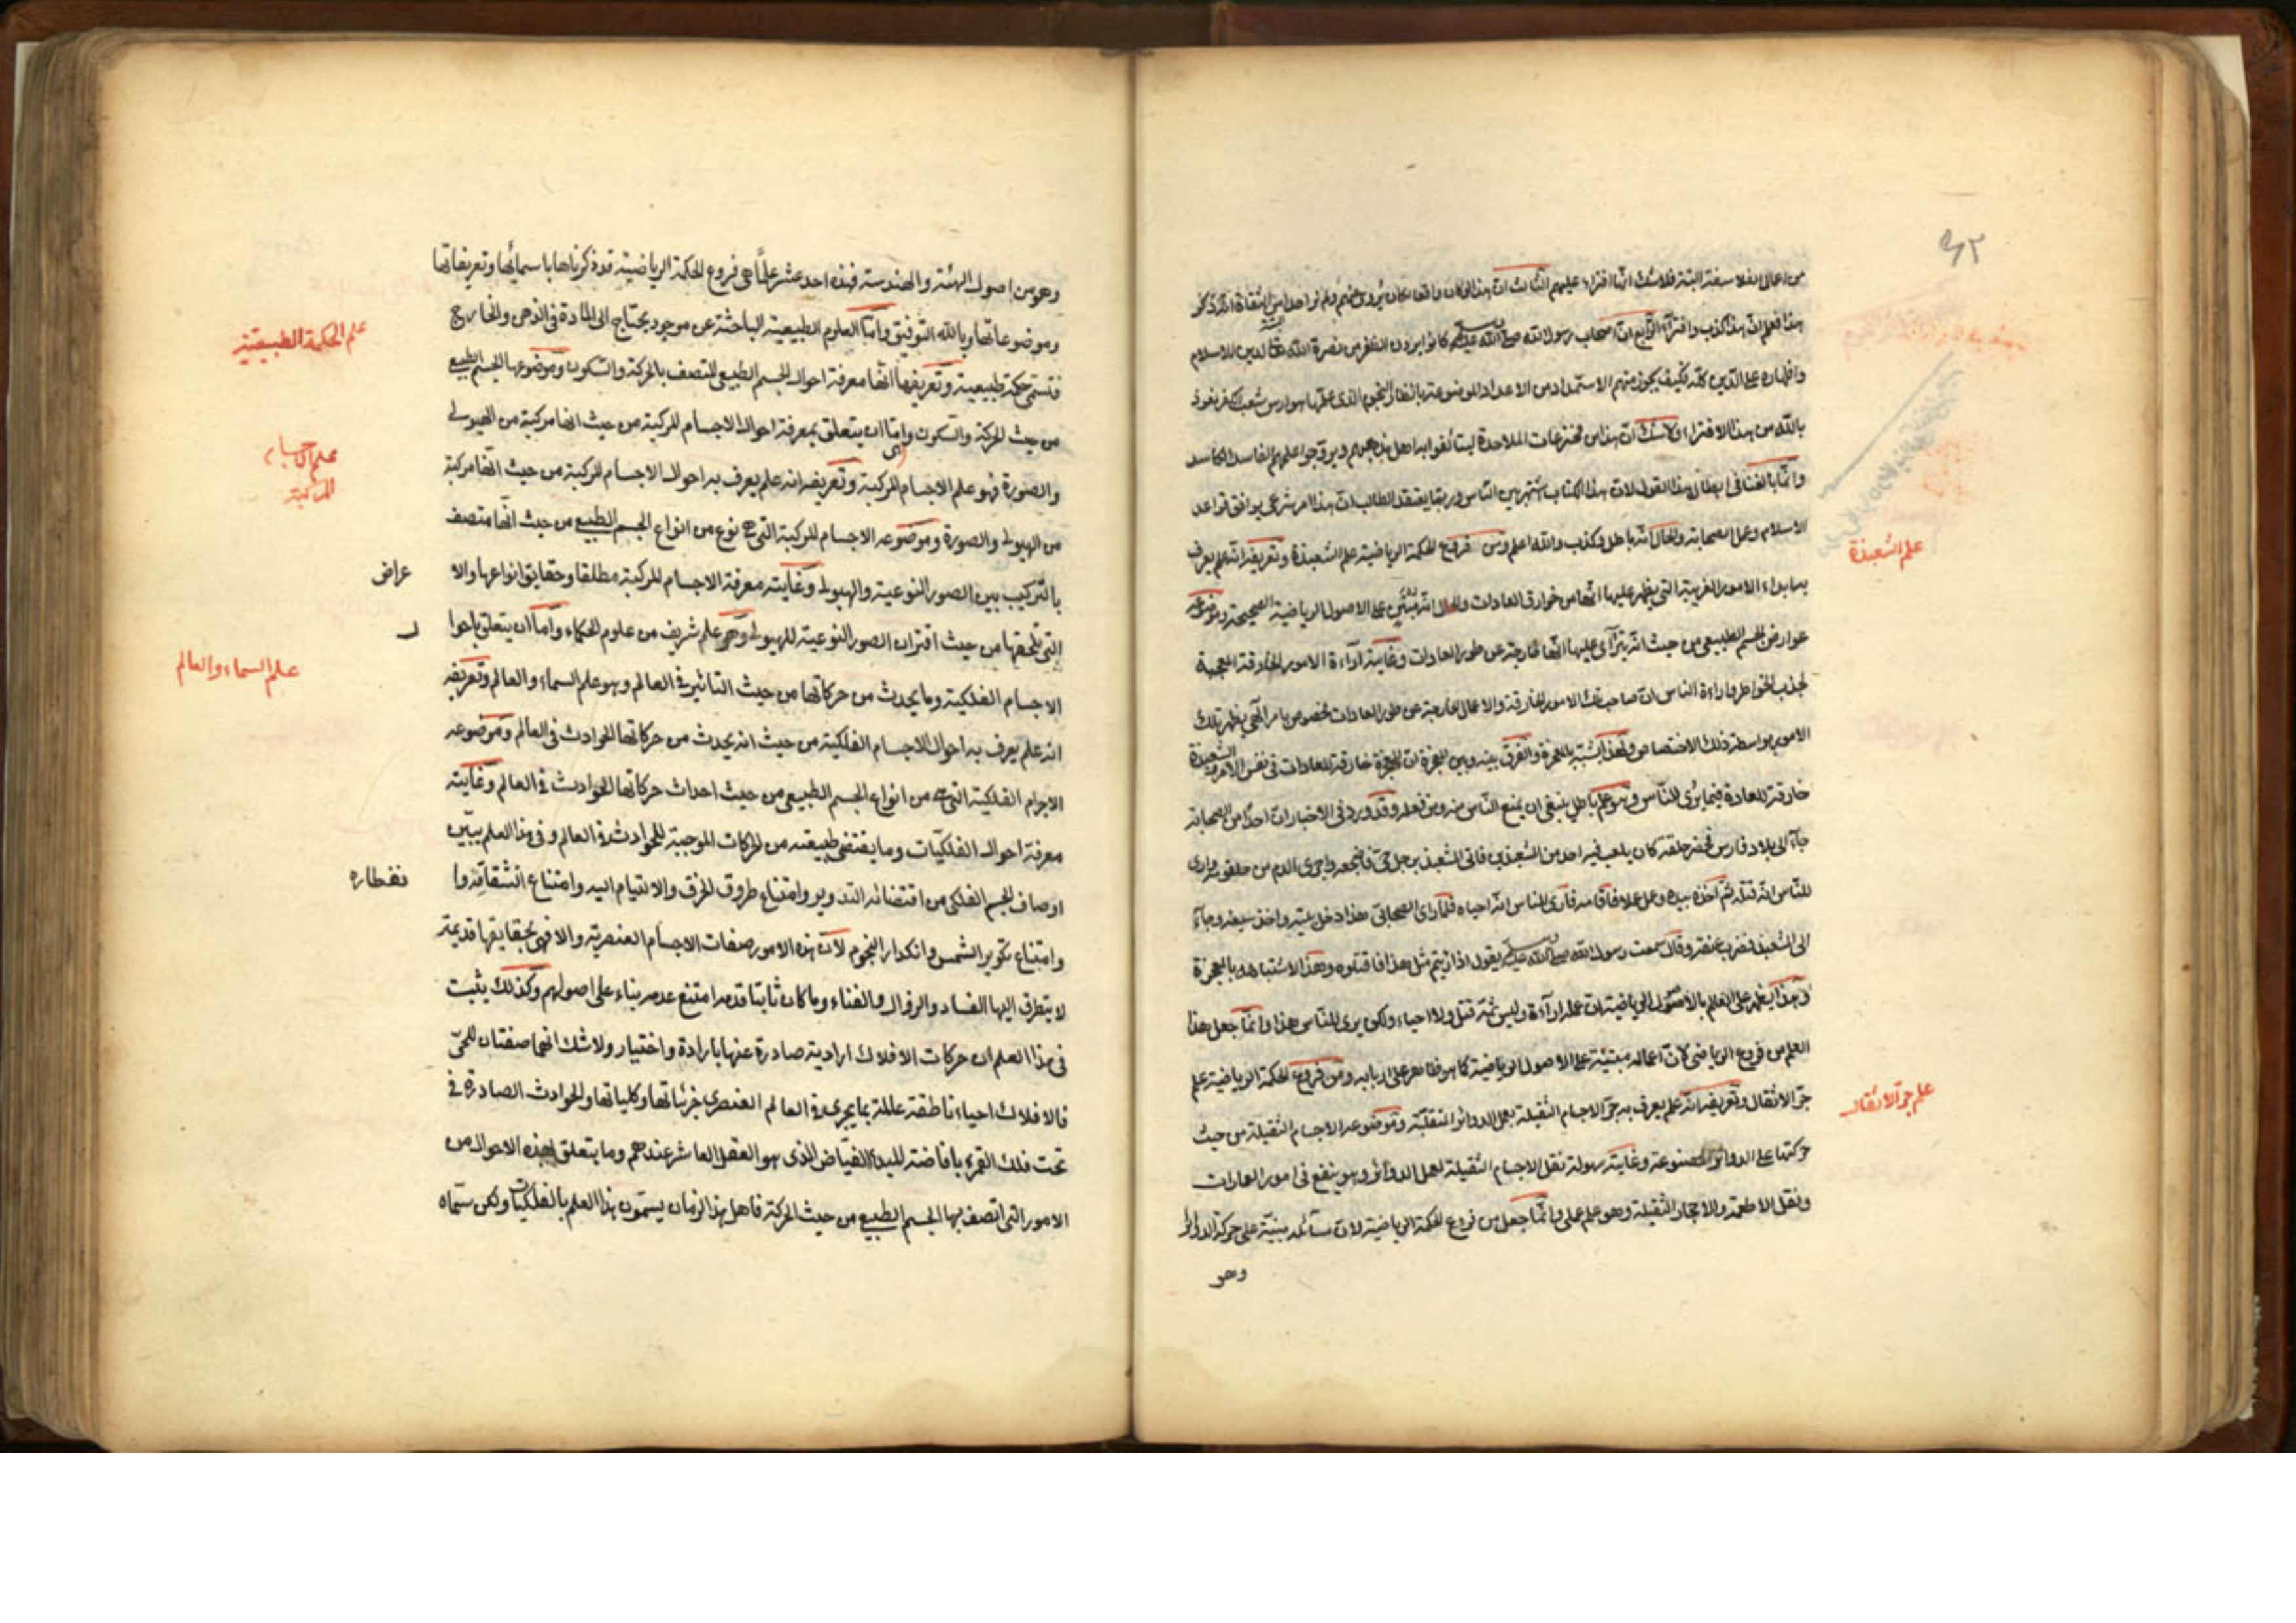 ٩٢
من اعالى الفلاسفة البتة فلا شك انها افتراء عليهم الثالث ان هذا لو كان واقعا لكان يروى عنهم ولم نر احدا من الثقاة انه ذكر
هذا فعلم ان هذا كذب وافتراء الرابع ان اصحاب رسول الله صلى الله عليه وسلم كانوا يرون الظفر من نصرة الله تعالى لدين الاسلام
واظهاره على الدين كله فكيف يجوز منهم الاستمداد من الاعداد الموضوعة بانظار النجوم الذى علمها هو ارس شعب الكفر نعوذ
بالله من هذا الافتراء ولا شك ان هذا من مخترعات الملاحدة ليستألفوا به اهل مذهبهم ويروجوا علمهم الفاسد الكاسد
وانما بالغنا فى ابطال هذا القول لان هذا الكتاب اشتهر بين الناس وربما يعتقد الطالب ان هذا امر شرعى يوافق قواعد
الاسلام وعمل الصحابة والحال انه باطل وكذب والله اعلم ومن فروع الحكمة الرياضية علم الشعبذة وتعريفه انه علم يعرف
علم الشعبذة
به ابداء الامور الغريبة التى يظهر عليها انها من خوارق العادات والحال انه مبتنى على الاصول الرياضية الصحيحة وموضوعه
عوارض الجسم الطبيعى من حيث انه يترآى عليها انها خارجة عن طور العادات وغايته اراءة الامور الخارقة العجيبة
لجذب الخواطر واراءة الناس ان صاحب تلك الامور الخارقة والاعمال الخارجة عن طور العادات مخصوص بامر الهى يظهر تلك
الامور بواسطة ذلك الاختصاص وهذا يشبه بالمعجزة والفرق بينه وبين المعجزة ان المعجزة خارقة للعادات فى نفس الامر والشعبذة
خارقة للعادة فيما يرى للناس وهو علم باطل ينبغى ان يمنع الناس منه ومن فعله وقد ورد فى الاخبار ان احدا من الصحابة
جاء الى بلاد فارس فحضر حلقة كان يلعب فيه احد من المشعبذين فاتى المشعبذ برجل حى فاضجعه واجرى الدم من حلقومه وارى
للناس انه قتله ثم اخذه بيده وعمل عملا فاقامه فارى للناس انه احياه فلما راى الصحابى هذا دخل بيته واخذ سيفه وجاء
الى المشعبذ فضرب عنقه وقال سمعت رسول الله صلى الله عليه وسلم يقول اذا رايتم مثل هذا فاقتلوه وهذا لاشتباهه بالمعجزة
وهذا يظهر على العلم بالاصول الرياضية ان عمله اراءة وليس ثمة قتل ولا احياء ولكن يرى للناس هذا وانما جعل هذا
العلم من فروع الرياضى لان اعماله مبتنية على الاصول الرياضية كما هو ظاهر على اربابه ومن فروع الحكمة الرياضية علم
جر الاثقال وتعريفه انه علم يعرف به جر الاجسام الثقيلة بعمل الدوائر المنقلبة وموضوعه الاجسام الثقيلة من حيث
علم جر الاثقال
حركتها على الدوائر المصنوعة وغايته سهولة نقل الاجسام الثقيلة بعمل الدوائر وهو ينفع فى امور العمارات
ونقل الاطعمة والاحجار الثقيلة وهو علم عملى وانما جعل من فروع الحكمة الرياضية لان مسائله مبنية على حركة الدوائر
وهو
وهو من اصول الهيئة والهندسة فهذه احد عشر علما هى فروع الحكمة الرياضية قد ذكرناها باسمائها وتعريفاتها
وموضوعاتها وبالله التوفيق واما العلوم الطبيعية الباحثة عن موجود يحتاج الى المادة فى الذهن والخارج
علم الحكمة الطبيعية
فتسمى حكمة طبيعية وتعريفها انها معرفة احوال الجسم الطبيعى المتصف بالحركة والسكون وموضوعها الجسم الطبيعى
من حيث الحركة والسكون واما ان يتعلق بمعرفة احوال الاجسام المركبة من حيث انها مركبة من الهيولى
علم الاجسام
المركبة
والصورة فهو علم الاجسام المركبة وتعريفه انه علم يعرف به احوال الاجسام المركبة من حيث انها مركبة
من الهيولى والصورة وموضوعه الاجسام المركبة التى هى نوع من انواع الجسم الطبيعى من حيث انها متصف
بالتركيب بين الصور النوعية والهيولى وغايته معرفة الاجسام المركبة مطلقا وحقايق انواعها والا عراض
التى تلحقها من حيث اقتران الصور النوعية للهيولى وهو علم شريف من علوم الحكماء واما ان يتعلق باحوا ل
علم السماء والعالم
الاجسام الفلكية وما يحدث من حركاتها من حيث التاثير فى العالم وهو علم السماء والعالم وتعريفه
انه علم يعرف به احوال الاجسام الفلكية من حيث انه يحدث من حركاتها الحوادث فى العالم وموضوعه
الاجرام الفلكية التى هى من انواع الجسم الطبيعى من حيث احداث حركاتها الحوادث فى العالم وغايته
معرفة احوال الفلكيات وما يقتضى طبيعته من الحركات الموجبة للحوادث فى العالم وفى هذا العلم يبين
اوصاف الجسم الفلكى من اقتضائه التدوير وامتناع طروق الخرق والالتيام اليه وامتناع انشقاقه وا نفطاره
وامتناع تكوير الشمس وانكدار النجوم لان هذه الامور صفات الاجسام العنصرية والا فهى بحقايقها قديمة
لا يتطرق اليها الفساد والزوال والفناء وما كان ثابتا قدمه امتنع عدمه بناء على اصولهم وكذلك يثبت
فى هذا العلم ان حركات الافلاك ارادية صادرة عنها بارادة واختيار ولا شك انهما صفتان للحى
فالافلاك احياء ناطقة عالمة بما يجرى فى العالم العنصرى جزئياتها وكلياتها والحوادث الصادرة فى
تحت فلك القمر بافاضة المبدأ الفياض الذى هو العقل العاشر عندهم وما يتعلق بهذه الاحوال من
الامور التى اتصف بها الجسم الطبيعى من حيث الحركة فاهل هذا الزمان يسمون هذا العلم بالفلكيات ولكن سماه